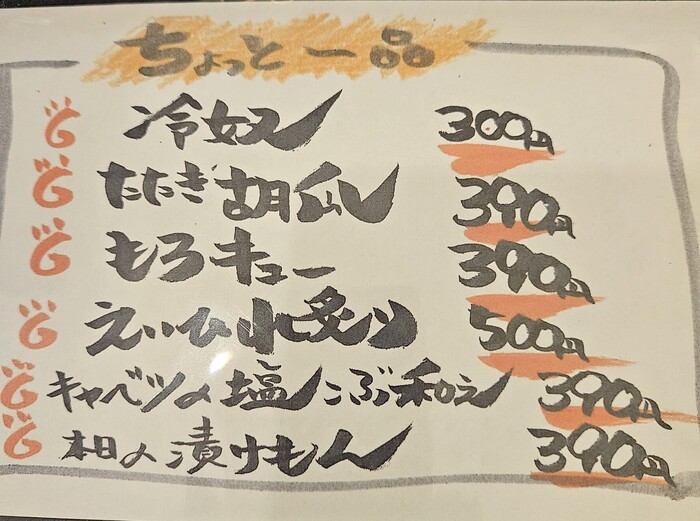 ちょっと一品
冷奴 300円
たたき胡瓜 390円
もろキュー 390円
えいひれ炙り 500円
キャベツの塩こぶ和え 390円
本日の漬けもん 390円